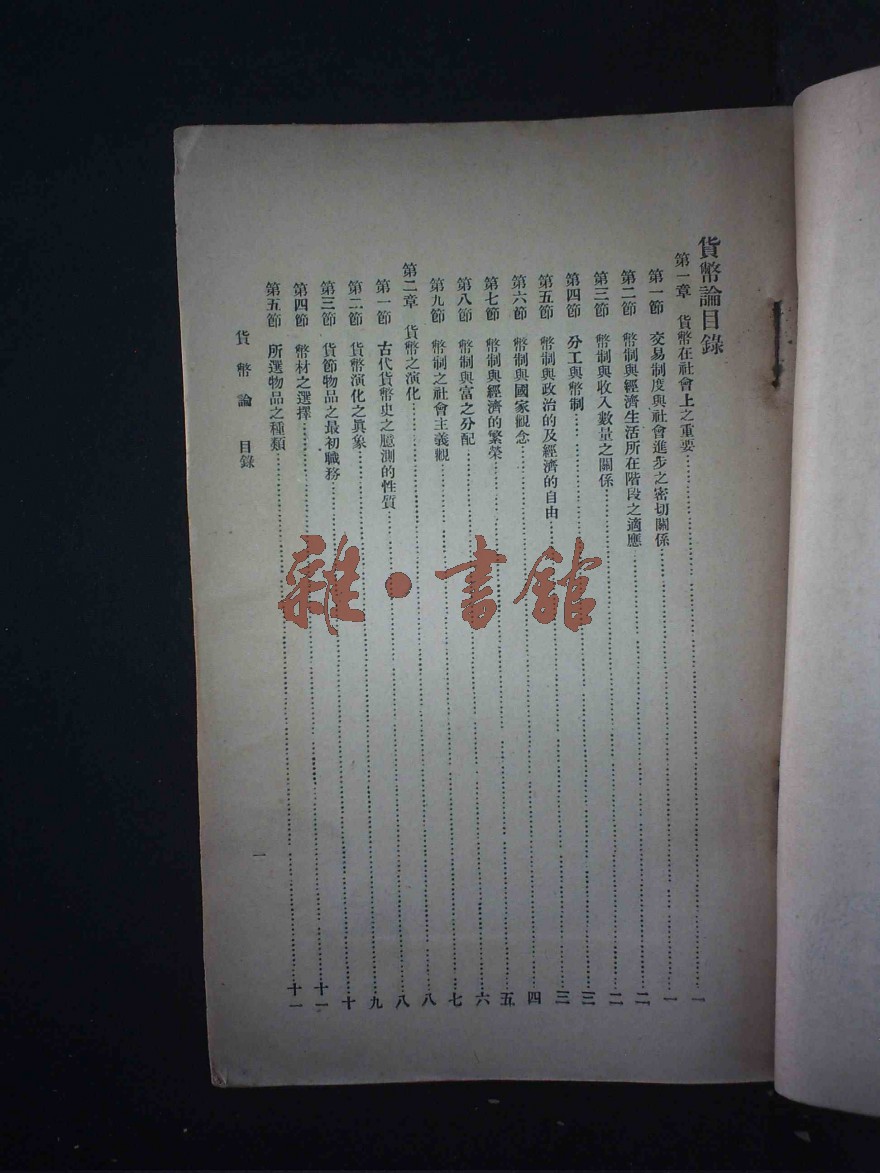 貨幣論目錄
第一章 貨幣在社會上之重要……一
第一節 交易制度與社會進步之密切關係……一
第二節 幣制與經濟生活所在階段之適應……二
第三節 幣制與收入數量之關係……二
第四節 分工與幣制……三
第五節 幣制與政治的及經濟的自由……三
第六節 幣制與國家觀念……四
第七節 幣制與經濟的繁榮……五
第八節 幣制與富之分配……六
第九節 幣制之社會主義觀……七
第二章 貨幣之演化……八
第一節 古代貨幣史之臆測的性質……八
第二節 貨幣演化之眞象……九
第三節 貨節物品之最初職務……十
第四節 幣材之選擇……十一
第五節 所選物品之種類……十一
貨幣論 目錄
一
雜·書館